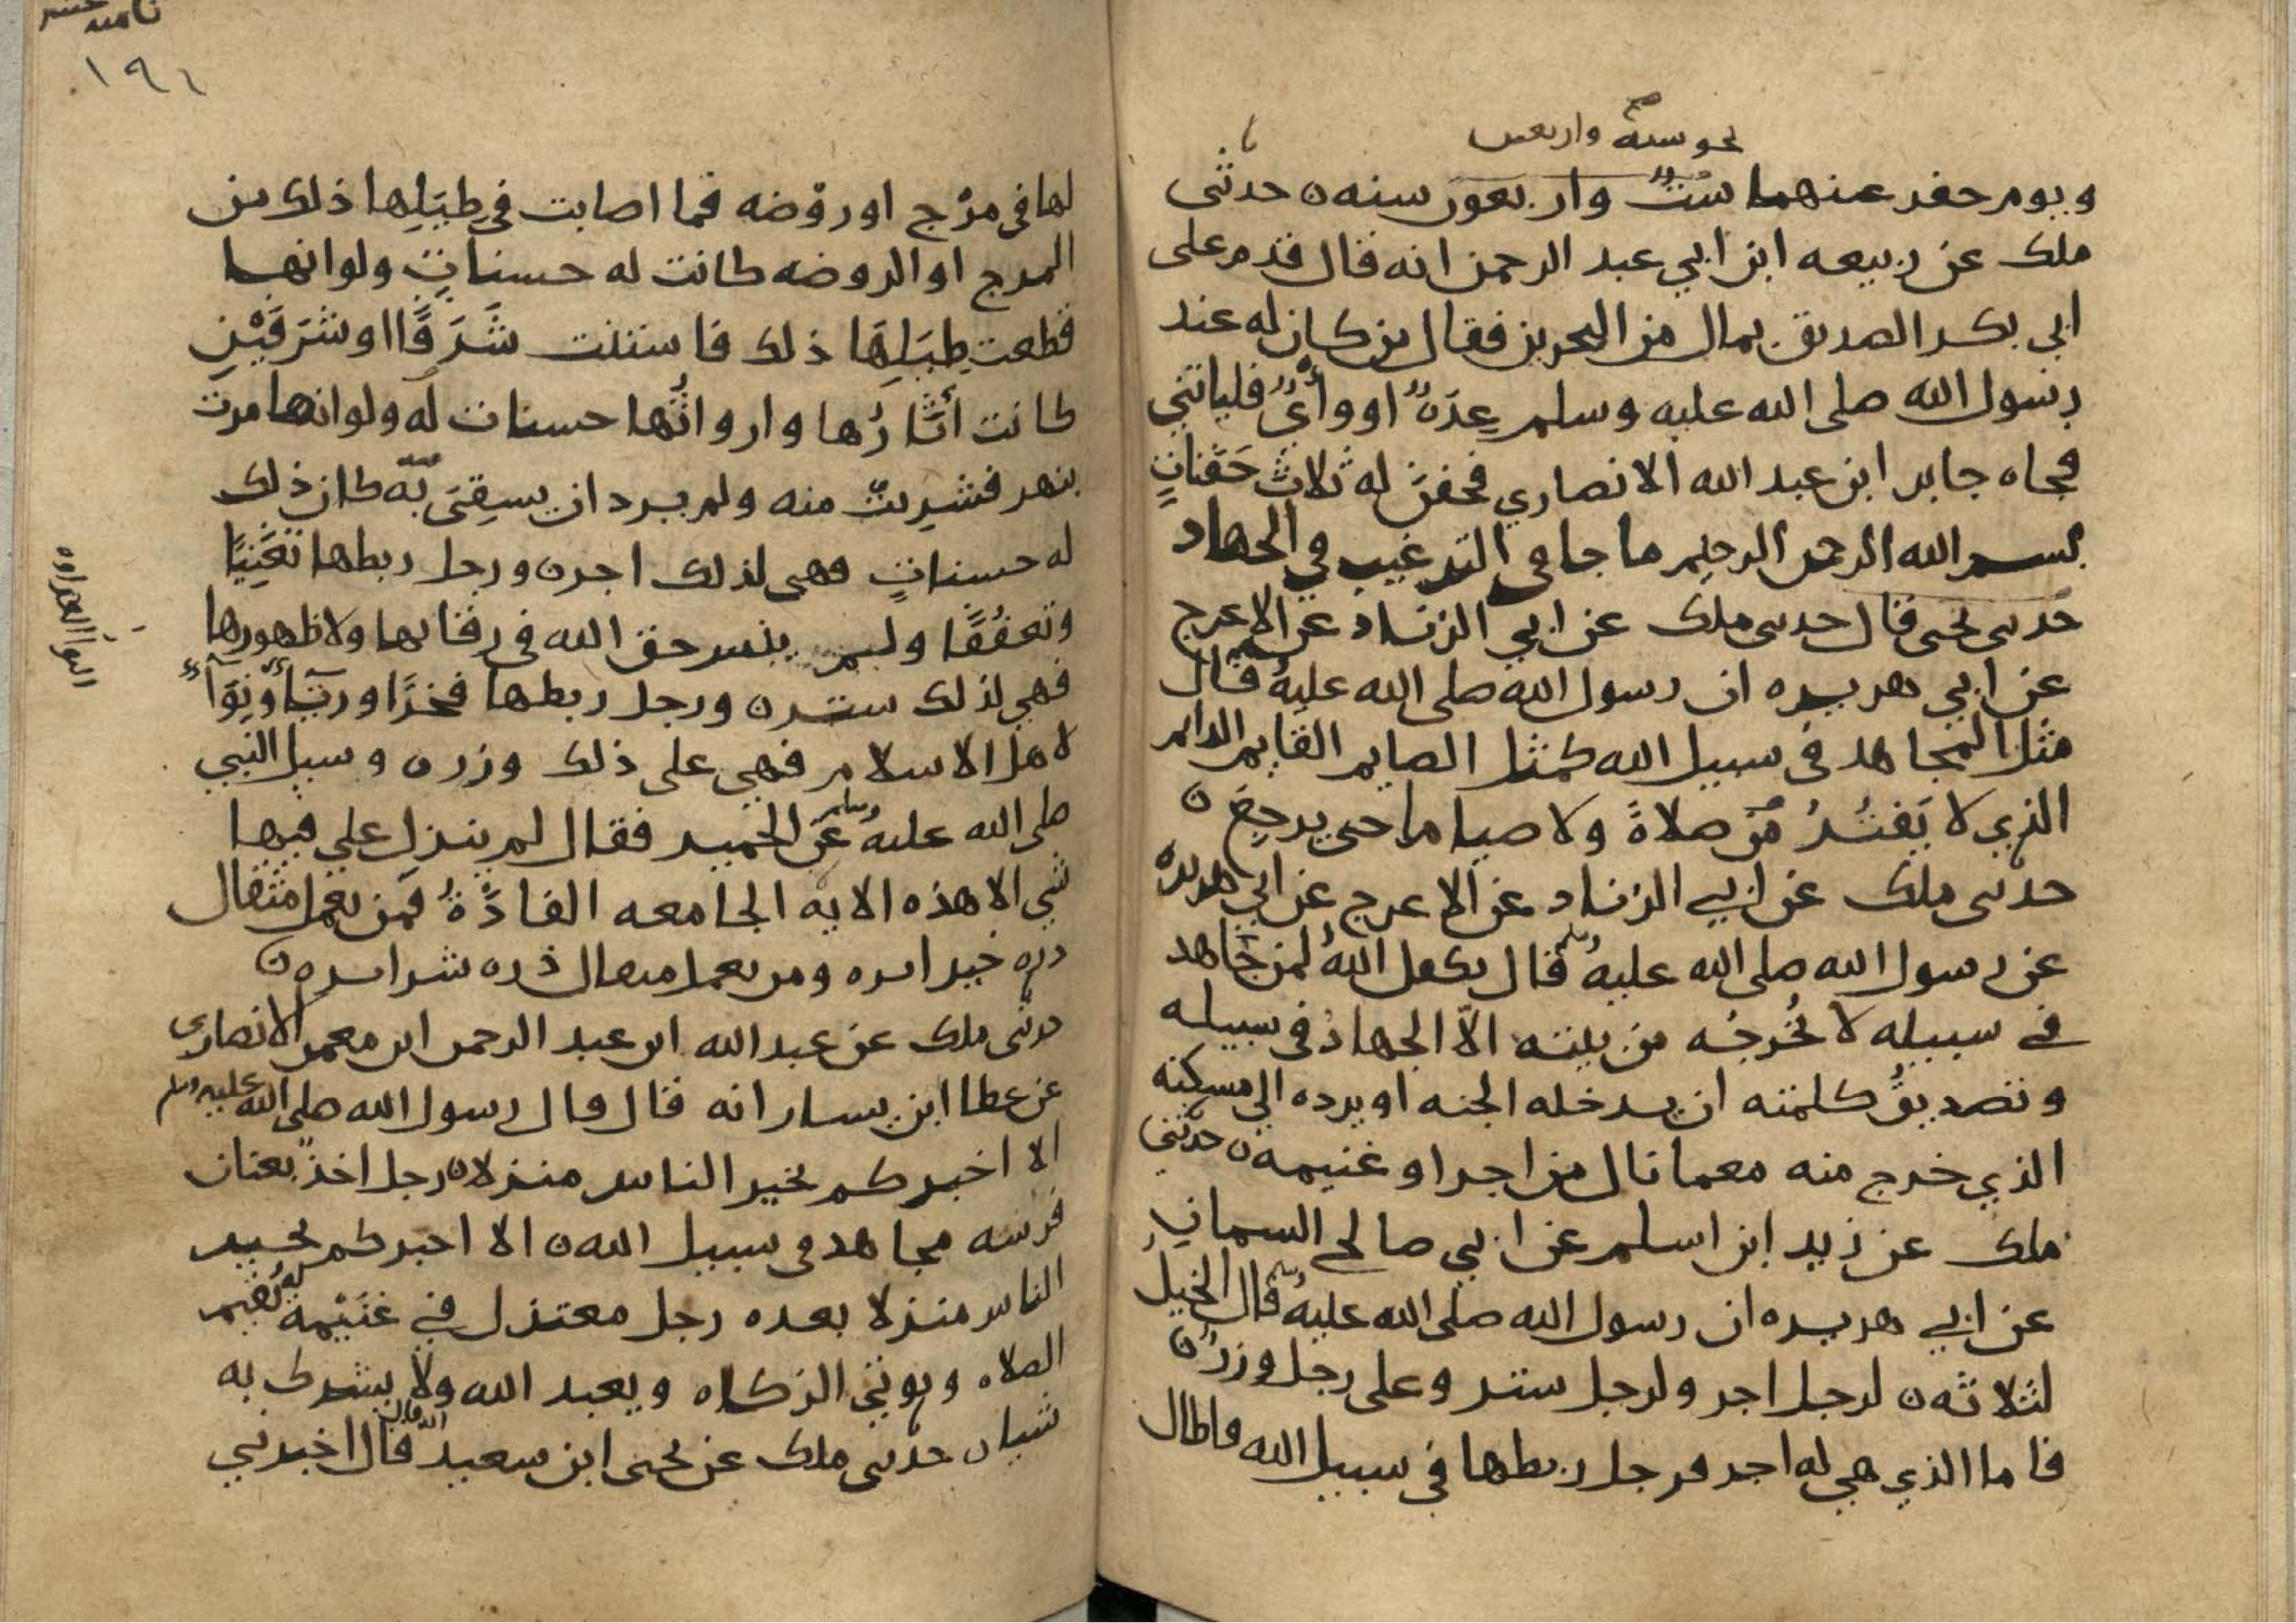 نحو ستة واربعين
ويوم حفر عنهما ست واربعون سنه حدثني
ملك عن ربيعه ابن ابي عبد الرحمن انه قال قدم على
ابي بكر الصديق بمال من البحرين فقال من كان له عند
رسول الله صلى الله عليه وسلم عِدَةٌ او وأيٌ فلياتني
فجاه جابر ابن عبد الله الانصاري فحفن له ثلاث حَفَناتٍ
بسم الله الرحمن الرحيم ما جا في الترغيب في الجهاد
حدثني يحيى قال حدثني ملك عن ابي الزناد عن الاعرج
عن ابي هريره ان رسول الله صلى الله عليه وسلم قال
مثل المجاهد في سبيل الله كمثل الصايم القايم الدايم
الذي لا يَفتُرُ من صلاةً ولا صيام حتى يرجِعَ ن
حدثني ملك عن ابي الزناد عن الاعرج عن ابي هريره
عن رسول الله صلى الله عليه وسلم قال تكفل اللهُ لمن جاهد
في سبيله لا يُخرجُه من بيته الّا الجهادُ في سبيله
وتصديقُ كلمته ان يدخله الجنه او يرده الى مسكنه
الذي خرج منه مع ما نال من اجر او غنيمه ن حدثني
ملك عن زيد ابن اسلم عن ابي صالح السمانِ
عن ابي هريره ان رسول الله صلى الله عليه وسلم قال الخيلُ
لثلاثه ن لرجل اجر ولرجل ستر وعلى رجل وزرٌ ن
فاما الذي هي له اجر فرجل ربطها في سبيل الله فاطال
ثامنه عشر
١٩٦
لها في مرْج او روْضه فما اصابت في طِيَلِها ذلك من
المرج او الروضه كانت له حسناتٍ ولو انها
قطعت طِيَلِهَا ذلك فاستنت شَرَفًا او شَرَفَيْنِ
كانت أثارُها واروائُها حسنات له ولو انها مرت
بنهر فشربتْ منه ولم يرد ان يسِقىَ به كان ذلك
له حسناتٍ فهي لذلك اجر ن ورجل ربطها تغَنِيًا
وتعفُفًا ولم ينس حق الله في رقابها ولا ظهورها
فهي لذلك ستر ن ورجل ربطها فخرًا ورياً ونِوَآءً
لاهل الاسلام فهي على ذلك وزر ن وسيل النبي
صلى الله عليه وسلم عن الحمير فقال لم ينزل علي فيها
شي الا هذه الايه الجامعه الفاذَةُ فمن يعمل مثقال
ذره خيرا يره ومن يعمل مثقال ذره شرا يره ن
حدثني ملك عن عبد الله ابن عبد الرحمن ابن معمر الانصاري
عن عطا ابن يسار انه قال قال رسول الله صلى الله عليه وسلم
الا اخبركم بخير الناس منزلا ن رجل اخذ بعنان
فرسه مجاهد في سبيل الله ن الا اخبركم بخير
الناس منزلا بعده رجل معتزل في غنَيْمة له يُقيم
الصلاه ويوتي الزكاه ويعبد الله ولا يشرك به
شيا ن حدثني ملك عن يحيى ابن سعيد انه قال قال اخبرني